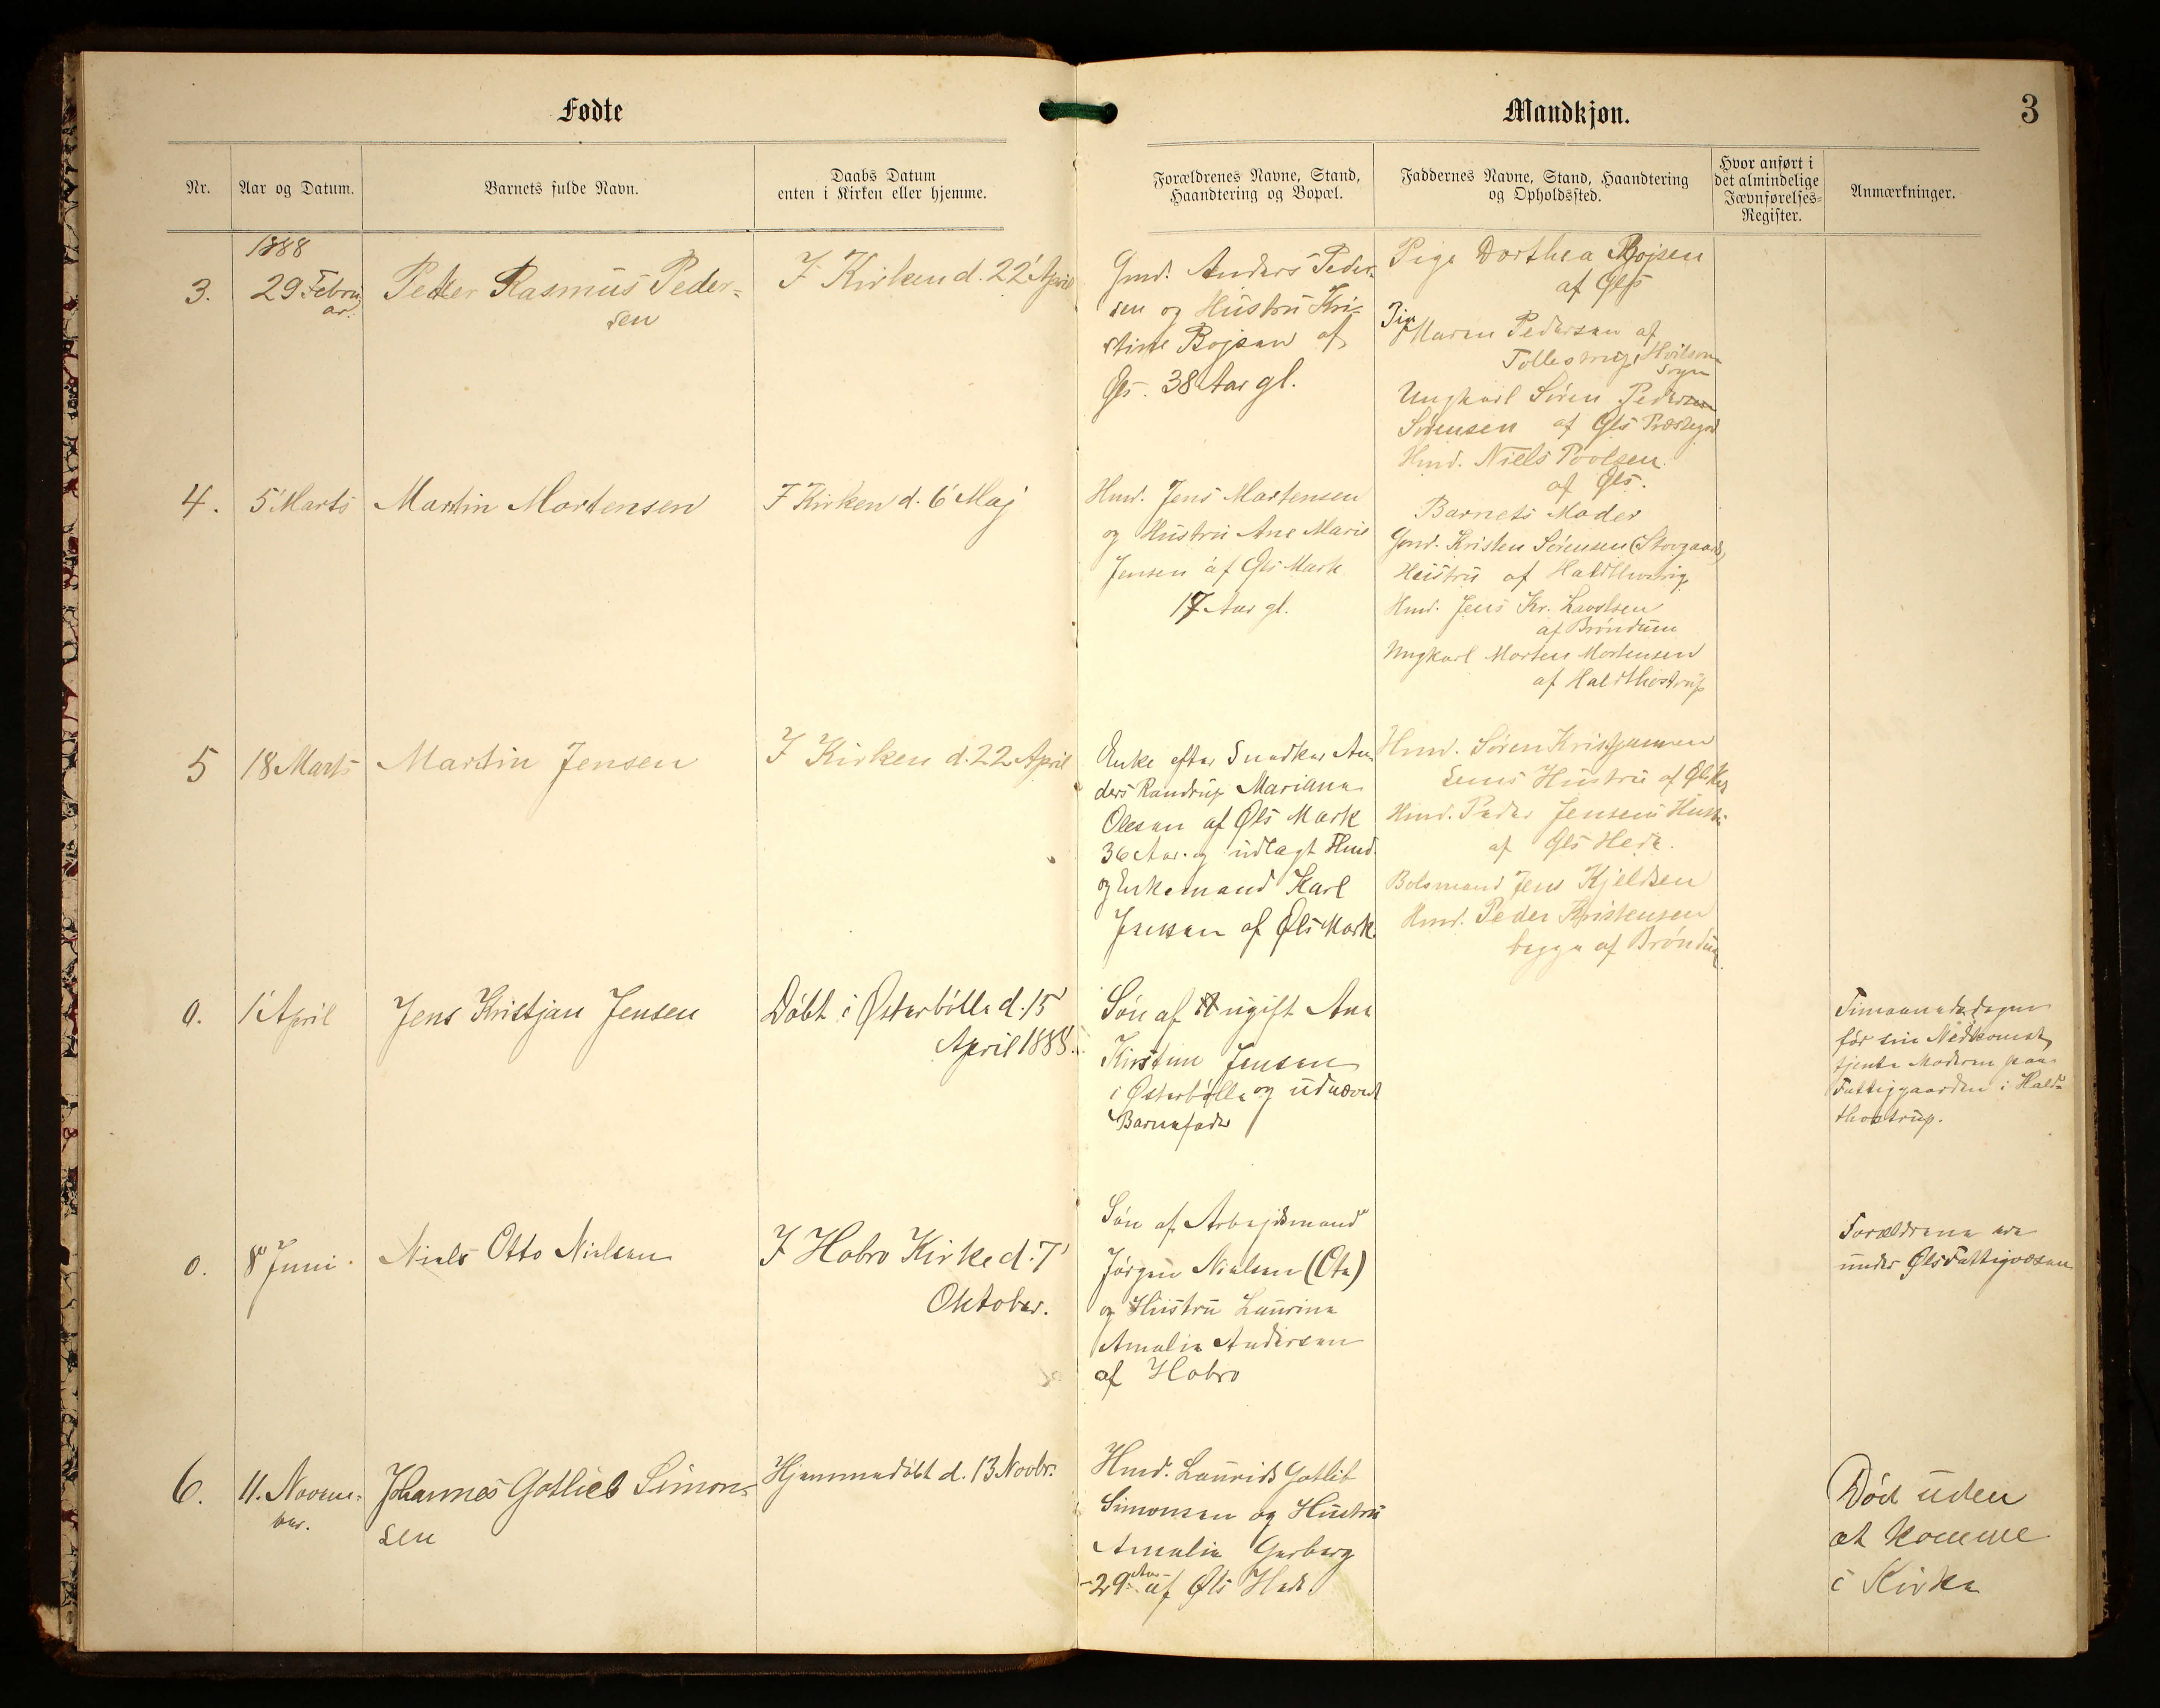 Fødte
Mandkjøn.
3
Nr.
Aar og Datum.
Barnets fulde Navn.
Daabs Datum
enten i Kirken eller hjemme.
Forældrenes Navne, Stand,
Haandtering og Bopæl.
Faddernes Navne, Stand, Haandtering
og Opholdssted.
Hvor anført i
det almindelige
Jævnførelses-
Register.
Anmærkninger.
1888
3.
29 Febru
ar.
Peder Rasmus Peder-
sen
I Kirken d. 22' April
Gmd. Anders Peder-
sen og Hustru Kri-
stine Bojsen af
Øls. 38 Aar gl.
Pige Dorthea Bojsen
af Øls
Pig Maren Pedersen af
Tollestrup, Hvilsom
Sogn
Ungkarl Søren Pedersen
Sørensen af Øls Præstegrd
Hmd. Niels Povlsen
af Øls.
4.
5' Marts
Martin Mortensen
I Kirken d. 6' Maj
Hmd. Jens Mortensen
og Hustru Ane Marie
Jensen af Øls Mark
17 Aar gl.
Barnets Moder
Gmd. Kristen Sørensen (Skovgaards)
Hustru af Haldthostrup
Hmd. Jens Kr. Lavstsen
af Brøndum
Ungkarl Morten Mortensen
af Haldthostrup
5
18 Marts
Martin Jensen
I Kirken d. 22 April
Enke efter Snedker An
ders Randrup Mariane
Olesen af Øls Mark
36 Aar. og udlagt Hmd.
og Enkemand Karl
Jensen af Øls Mark.
Hmd. Søren Kristjansen
Hustru af Øls
Hmd. Peder Jensens Hustr.
af Øls Hede.
Bolsmand Jens Kjeldsen
Hmd. Peder Kristensen
begge af Brøndum
0.
1' April
Jens Kristjan Jensen
Døbt i Østerbølle d. 15'
April 1888.
Søn af ugift Ane
Kirstine Jensen
i Østerbølle og udnævnt
Barnefader
Timaanedsdagen
før sin Nedkomst
tjente Moderen paa
Fattiggaarden i Hald-
thostrup.
0.
8' Juni.
Niels Otto Nielsen
I Hobro Kirke d. 7'
Oktober.
Søn af Arbejdsmand
Jørgen Nielsen (Ote)
og Hustru Laurine
Amalie Andersen
af Hobro
Forældrene ere
under Øls Fattigvæsen
6.
11. Novem-
ber.
Johannes Gotlieb Simon-
sen
Hjemmedøbt d. 13 Novbr.
Hmd. Laurids Gotlib
Simonsen og Hustru
Amalie Garberg
-29 Aar- af Øls Hede
Død uden
at komme
i Kirke